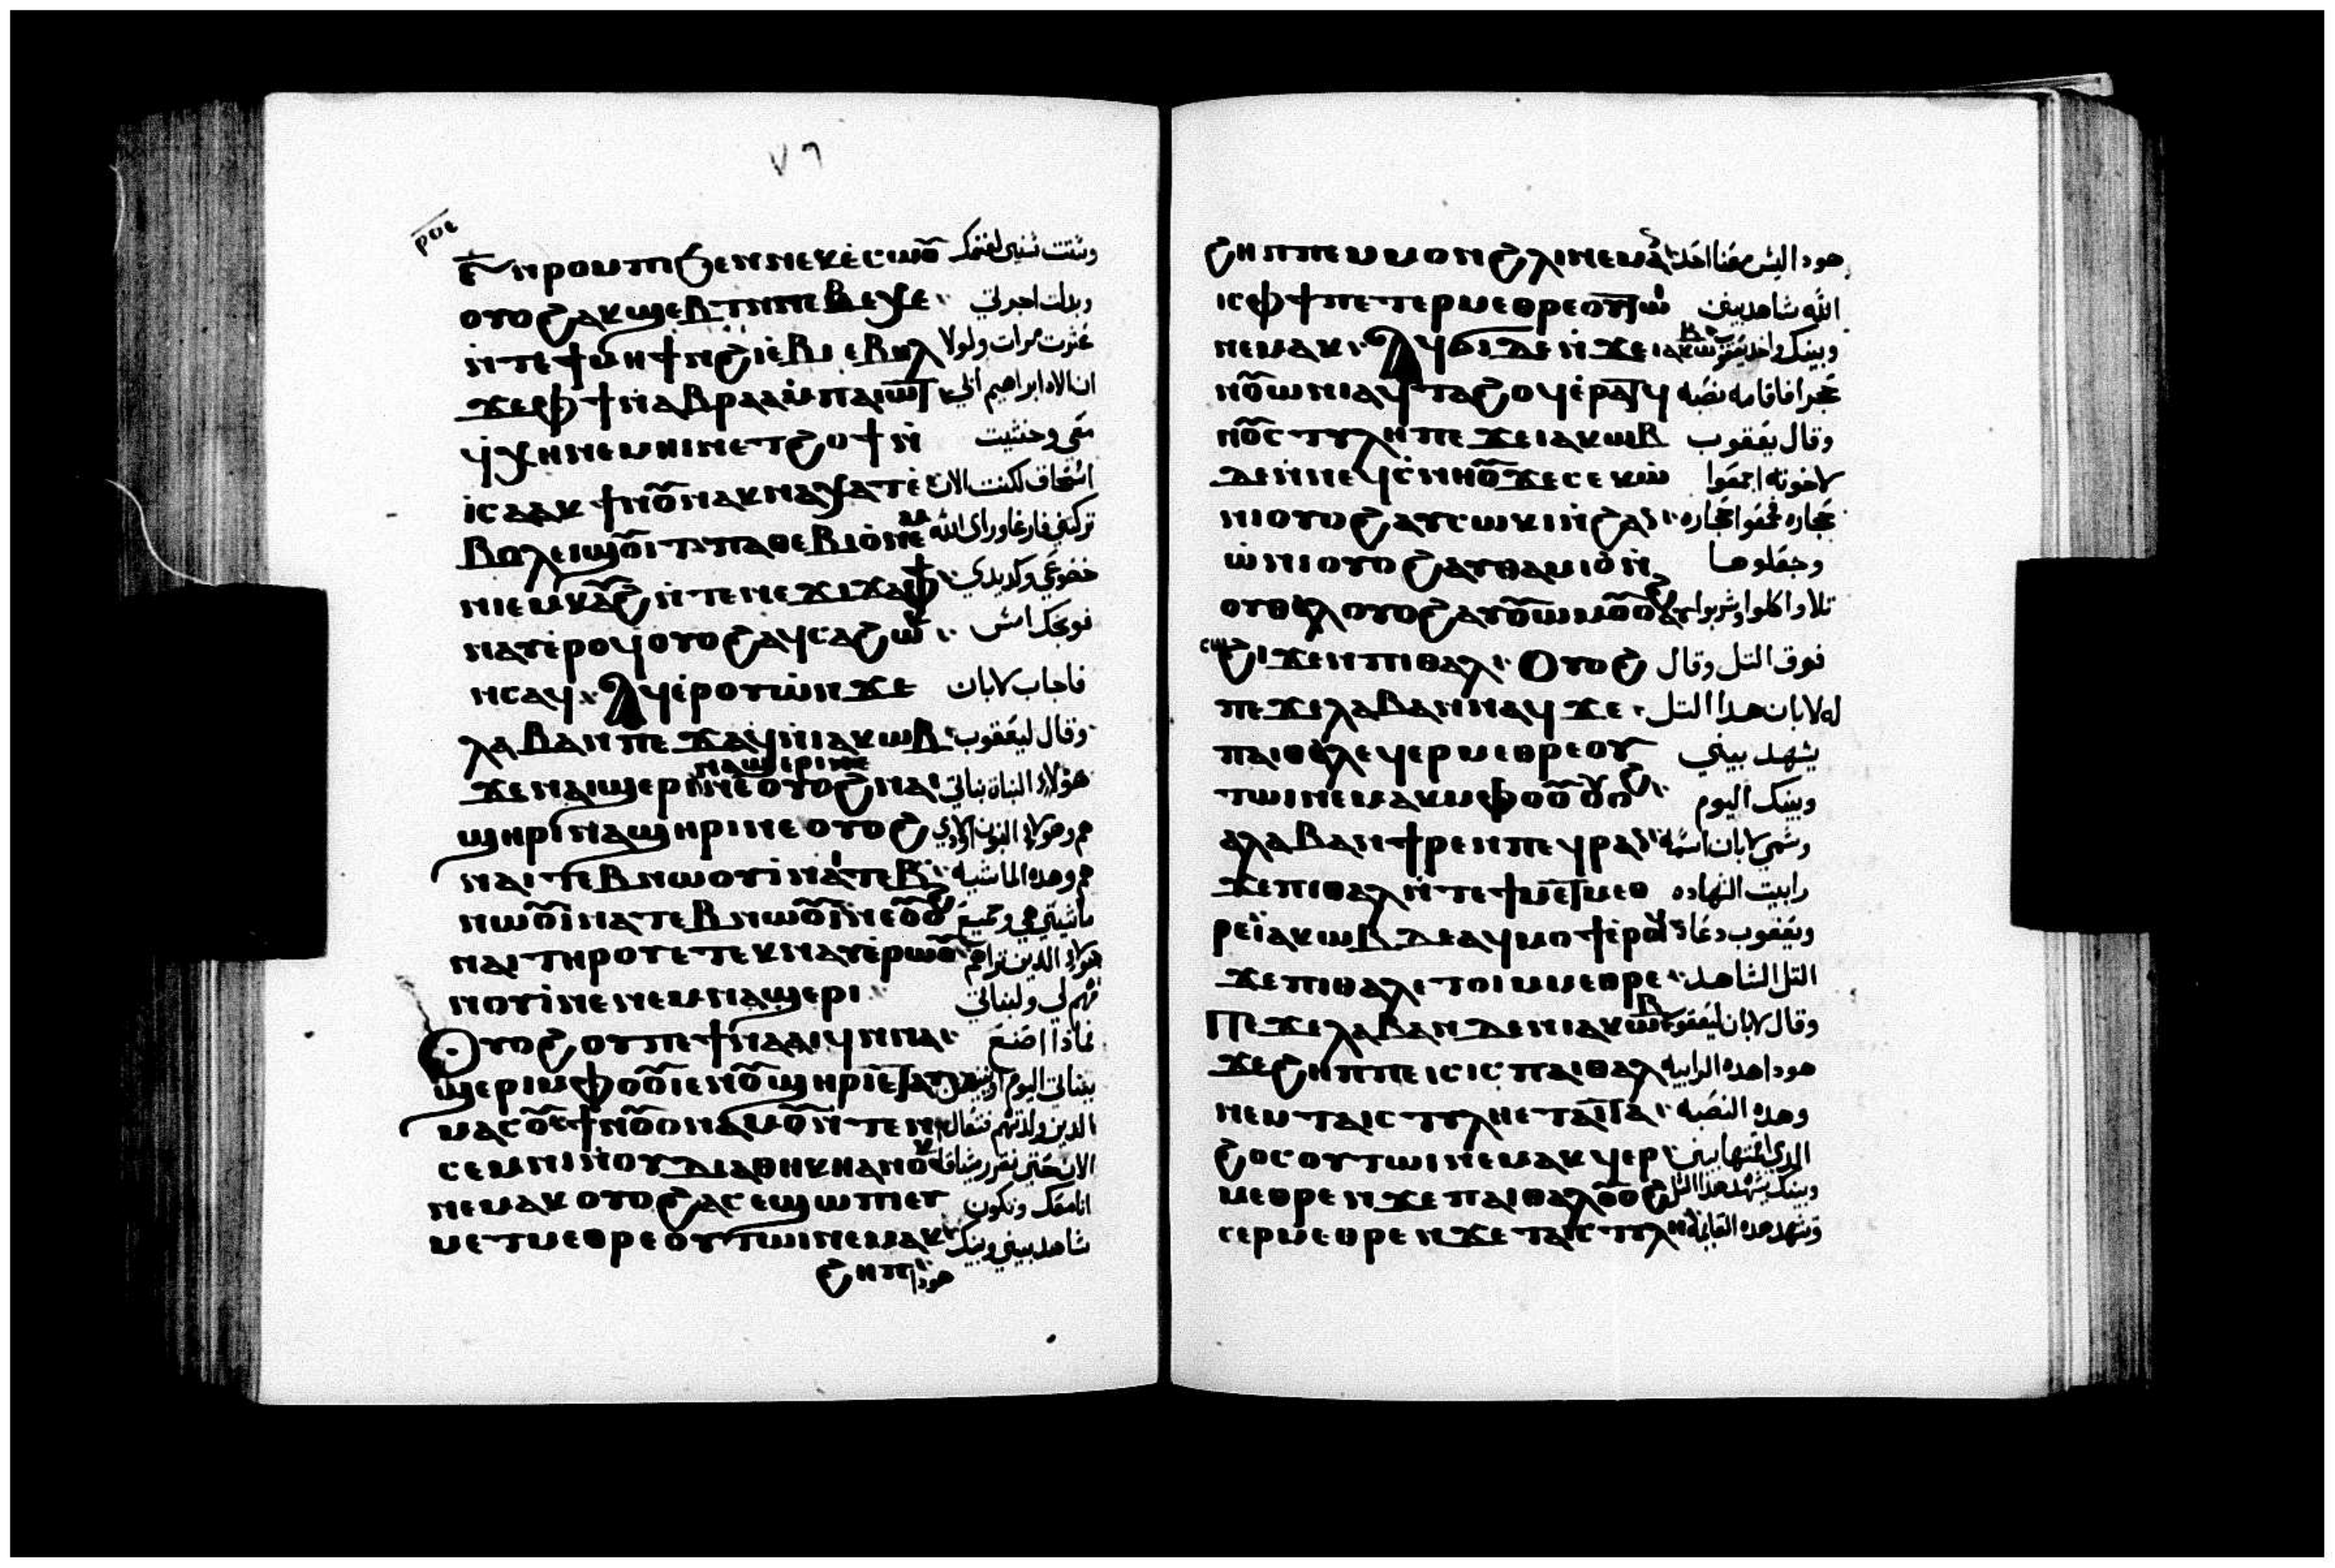 ٧٦
ⲣⲟⲉ
ⲛ̀ⲣⲟⲙⲡⲓ ϧⲉⲛ ⲛⲉⲕⲉ̀ⲥⲱⲟⲩ وستت سنين لغنمك
ⲟⲩⲟϩ ⲁⲕϣⲉⲃⲧ ⲡⲁⲃⲉⲭⲉ وبدلت اجرتي
ⲛ̀ⲧⲉ ϯⲙⲏϯ ⲛ̀ϩⲓⲉ̀ⲃⲓ ⲉⲃⲏⲗ عشرت مرات ولولا
ϫⲉ ⲫϯ ⲛ̀ⲁⲃⲣⲁⲁⲙ ⲡⲁⲓⲱⲧ ان الاه ابراهيم ابي
ϥ̀ⲭⲏ ⲛⲉⲙⲏⲓ ⲛⲉⲧϩⲟϯ ⲛ̀ معي وخشيت
ⲓ̀ⲥⲁⲁⲕ ϯⲛⲟⲩ ⲛⲁⲕⲛⲁⲭⲁⲧ ⲉ̀ اسحاق لكنت الان
ⲃⲟⲗ ⲉⲓϣⲟⲩⲓⲧ ⲡⲁⲑⲉⲃⲓⲟ̀ ⲛⲉ تركتني فارغا وراى الله
ⲙ ⲡⲓⲉⲙⲕⲁϩ ⲛ̀ⲧⲉ ⲛⲉϫⲓϫ ⲁⲫϯ خضوعي وكد يدي
ⲛⲁⲩ ⲉ̀ⲣⲟϥ ⲟⲩⲟϩ ⲁϥⲥⲁϩⲱⲕ فوبخك امس
ⲛⲥⲁϥ ⲁϥⲉ̀ⲣⲟⲩⲱ̀ ⲛϫⲉ فاجاب لابان
ⲗⲁⲃⲁⲛ ⲡⲉϫⲁϥ ⲛ̀ⲓⲁⲕⲱⲃ وقال ليعقوب
ⲛⲁϣⲉⲣⲓ ⲛⲉ
ϫⲉ ⲛⲁⲓϣⲉⲣⲓ ⲛⲉ ⲟⲩⲟϩ ⲛⲁⲓ هولاء البناة بناتي
ϣⲏⲣⲓ ⲛⲁϣⲏⲣⲓ ⲛⲉ ⲟⲩⲟϩ هم وهولاء البنون اولادي
ⲛⲁⲓⲧⲉⲃⲛⲱⲟⲩⲓ̀ ⲛⲁⲧⲉⲃ هم وهده الماشيه
ⲛⲱⲟⲩⲓ ⲛⲁⲧⲉⲃⲛⲱⲟⲩⲓ ⲛⲉ ⲟⲩⲟϩ ماشيتي هي وجميع
ⲛⲁⲓ ⲧⲏⲣⲟⲩ ⲉⲧⲉⲕⲛⲁⲩ ⲉ̀ⲣⲱⲟⲩ هولاء الدين تراهم
ⲛⲟⲩⲓ̀ ⲛⲉ ⲛⲉⲙ ⲛⲁϣⲉⲣⲓ فهم لي ولبناتي
ⲟⲩⲟϩ ⲟⲩⲡⲉϯⲛⲁⲁⲓϥ ⲛⲛⲁ فماذا اصنع
ϣⲉⲣⲓ ⲙⲫⲟⲟⲩ ⲓⲉ ⲛⲟⲩϣⲏⲣⲓ ⲉⲧⲁⲩ ببناتي اليوم او بنيهن
ⲙⲁⲥⲟⲩ ϯⲛⲟⲩ ⲟⲛ ⲁⲙⲟⲩ ⲛ̀ⲧⲉⲛ الدين ولدتهم فتعال
ⲥⲉⲙⲛⲓ ⲛ̀ⲟⲩⲇⲓⲁⲑⲏⲕⲏ ⲁⲛⲟⲕ الان حتي نقرر ميثاقا
ⲛⲉⲙⲁⲕ ⲟⲩⲟϩ ⲁⲥⲉϣⲱⲡⲓ ⲉⲩ انا معك وتكون
ⲙⲉⲧⲙⲉⲑⲣⲉ ⲟⲩⲧⲱⲓ ⲛⲉⲙⲁⲕ شاهد بيني وبينك
ϩⲏⲡ هودا
ϩⲏⲡⲡⲉ ⲙⲙⲟⲛ ϩⲗⲓ ⲛⲉⲙⲁⲛ هودا ليس معنا احدا
ⲓⲥ ⲫϯ ⲡⲉⲧⲉⲣⲙⲉⲑⲣⲉ ⲟⲩⲧⲱⲓ الله شاهد بيني
ⲛⲉⲙⲁⲕ ⲁϥϭⲓ ⲇⲉ ⲛ̀ϫⲉ ⲓⲁⲕⲱⲃ وبينك واخد يعقوب
ⲛⲟⲩⲱⲛⲓ ⲁϥⲧⲁϩⲟϥ ⲉ̀ⲣⲁⲧϥ حجرا فاقامه نصبه
ⲛⲟⲩⲥⲧⲩⲗⲏ ⲡⲉϫⲉ ⲓⲁⲕⲱⲃ وقال يعقوب
ⲇⲉ ⲛ̀ⲛⲉϥⲥ̀ⲛⲏⲟⲩ ϫⲉ ⲥⲉⲕ ⲱ̀ لاخوته اجمعوا
ⲛⲓ ⲟⲩⲟϩ ⲁⲩⲥⲱⲕⲓ ⲛ̀ϩⲁⲛ حجاره فجمعوا حجاره
ⲱ̀ⲛⲓ ⲟⲩⲟϩ ⲁⲩⲑⲁⲙⲓⲟ̀ ⲛ̀ وجعلوها
ⲟⲩⲑⲁⲗ ⲟⲩⲟϩ ⲁⲩⲟⲩⲱⲙ ⲟⲩⲟϩ ⲁⲩ تلا واكلوا وشربوا
ⲥⲱ ϩⲓϫⲉⲛ ⲡⲓⲑⲁⲗ ⲟⲩⲟϩ فوق التل وقال
ⲡⲉϫⲉ ⲗⲁⲃⲁⲛ ⲛⲁϥ ϫⲉ له لابان هدا التل
ⲡⲁⲓⲑⲁⲗ ⲉϥⲉⲣⲙⲉⲑⲣⲉ ⲟⲩ يشهد بيني
ⲧⲱⲓ ⲛⲉⲙⲁⲕ ⲙⲫⲟⲟⲩ ⲟⲩⲟϩ وبينك اليوم
ⲁⲗⲁⲃⲁⲛ ϯⲣⲉⲛ ⲡⲉϥⲣⲁⲛ وسمي لابان اسمه
ϫⲉ ⲡⲓⲑⲁⲗ ⲛ̀ⲧⲉ ϯⲙⲉⲧⲙⲉⲑ رابيت الشهاده
ⲣⲉ ⲓ̈ⲁⲕⲱⲃ ⲇⲉ ⲁϥⲙⲟⲩϯ ⲉ̀ⲣⲟϥ ويعقوب دعاه
ϫⲉ ⲡⲓⲑⲁⲗ ⲉⲧⲟⲓ ⲙⲙⲉⲑⲣⲉ التل الشاهد
ⲡⲉϫⲉ ⲗⲁⲃⲁⲛ ⲇⲉ ⲛⲓⲁⲕⲱⲃ وقال لابان ليعقوب
ϫⲉ ϩⲏⲡⲡⲉ ⲓⲥ ⲓⲥ ⲡⲁⲓⲑⲁⲗ هودا هده الرابيه
ⲛⲉⲙ ⲧⲁⲓⲥⲧⲩⲗⲏ ⲉⲧⲁⲓⲧⲁ وهده النصبه
ϩⲟⲥ ⲟⲩⲧⲱⲓ ⲛⲉⲙⲁⲕ ϥⲉⲣ الدي اقمتها بيني
ⲙⲉⲑⲣⲉ ⲛϫⲉ ⲡⲁⲓⲑⲁⲗ ⲟⲩⲟϩ وبينك يشهد هدا التل
ⲥⲉⲣⲙⲉⲑⲣⲉ ⲛϫⲉ ⲧⲁⲓⲥⲧⲩⲗⲏ وتشهد هده القايمة